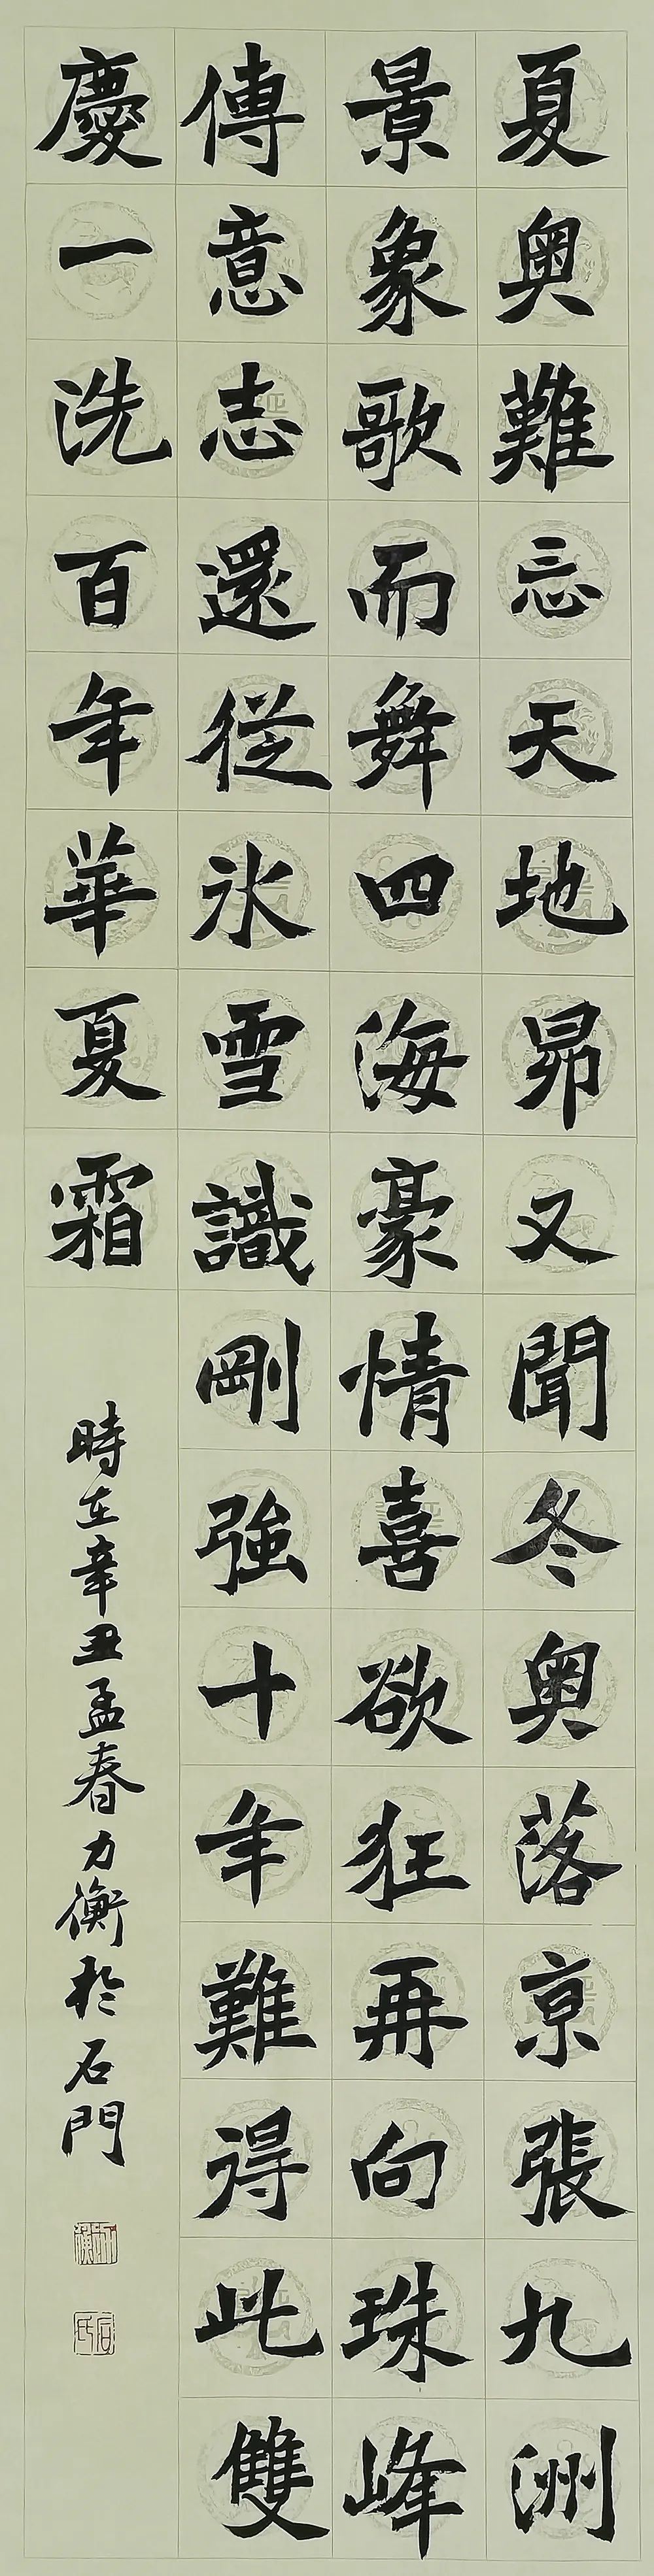 夏奧難忘天地昂又聞冬奧落京張九洲
景象歌而舞四海豪情喜欲狂再向珠峰
傳意志還從氷雪識剛強十年難得此雙
慶一洗百年華夏霜
時在辛丑孟春力衡於石門